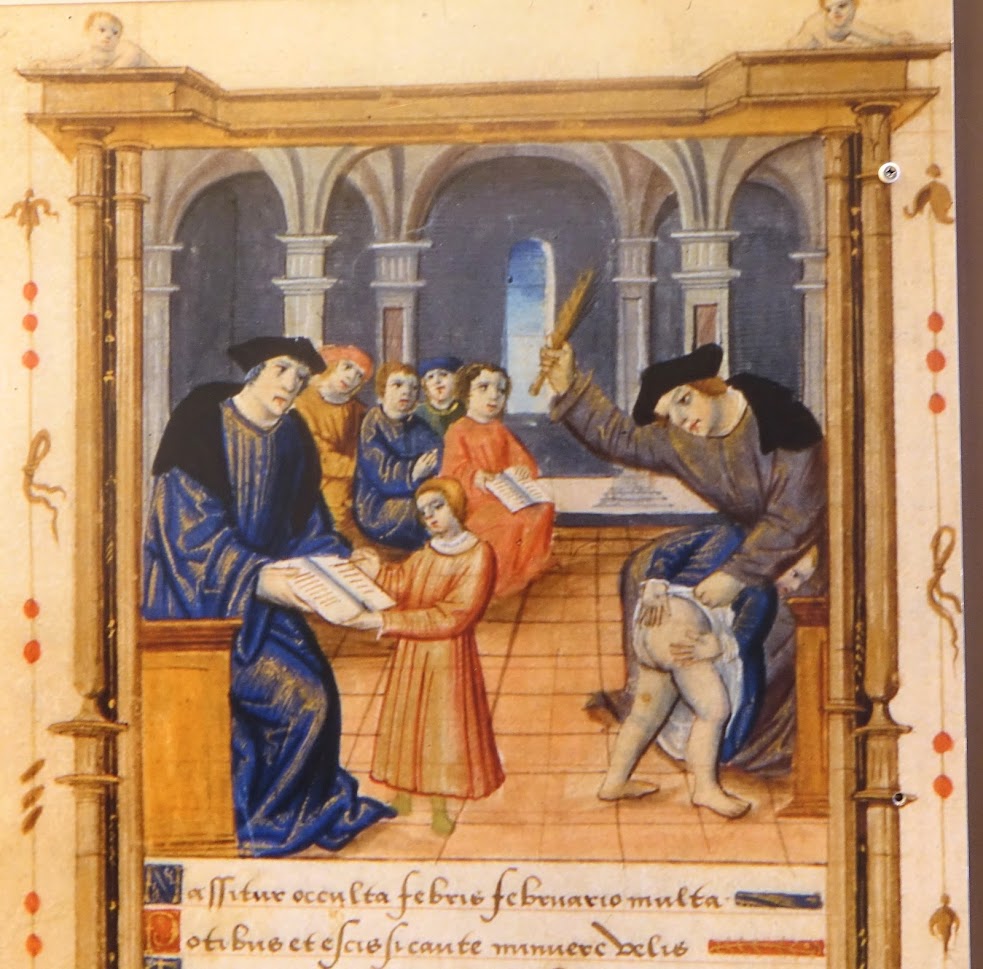 Nassitur occulta febris februario multa.
Potibus et escis si caute minuere velis